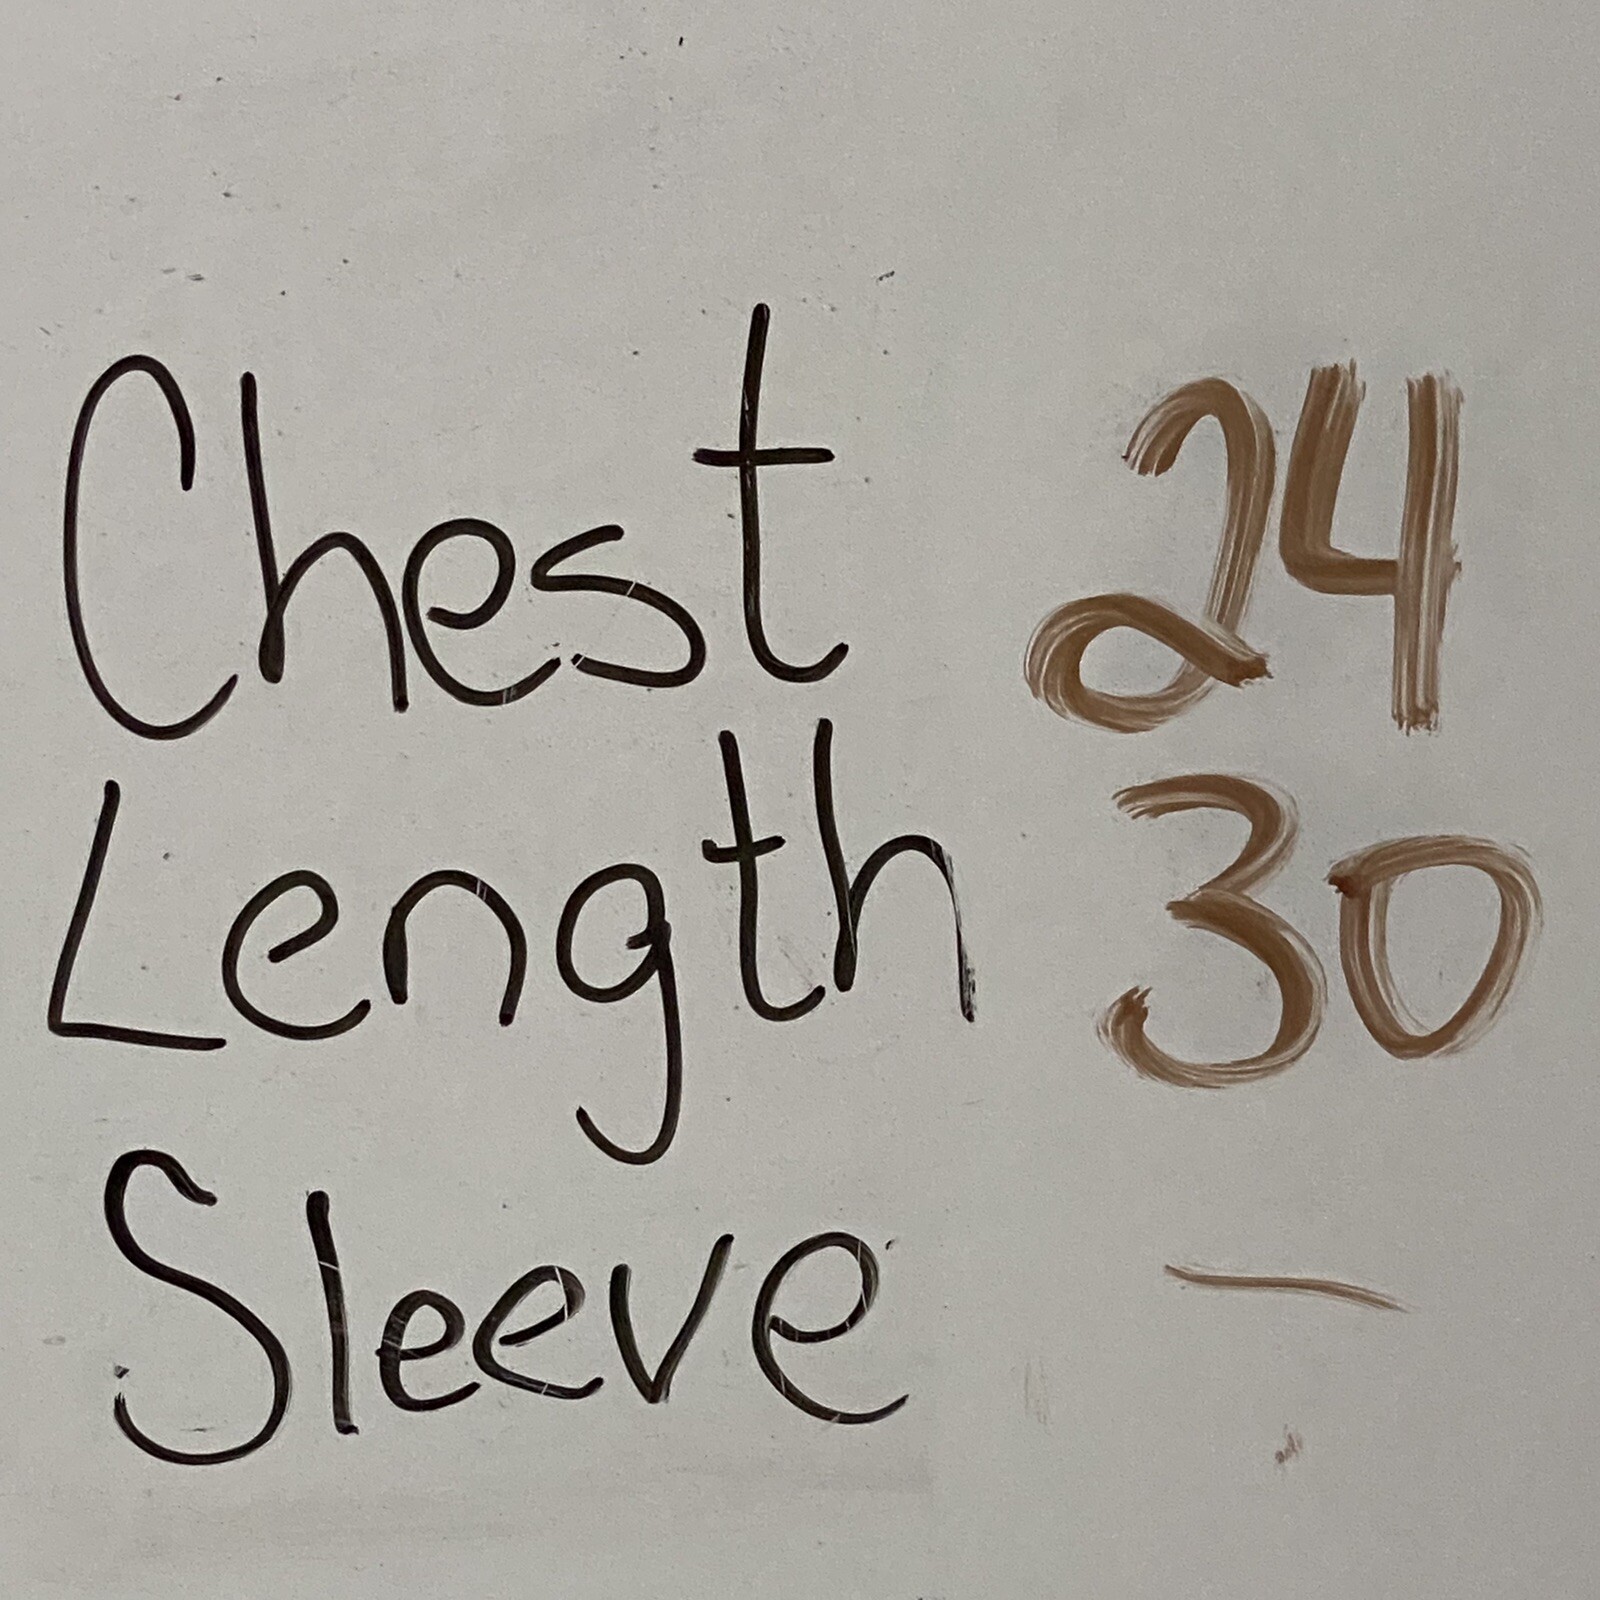 Chest 24
Length 30
Sleeve —